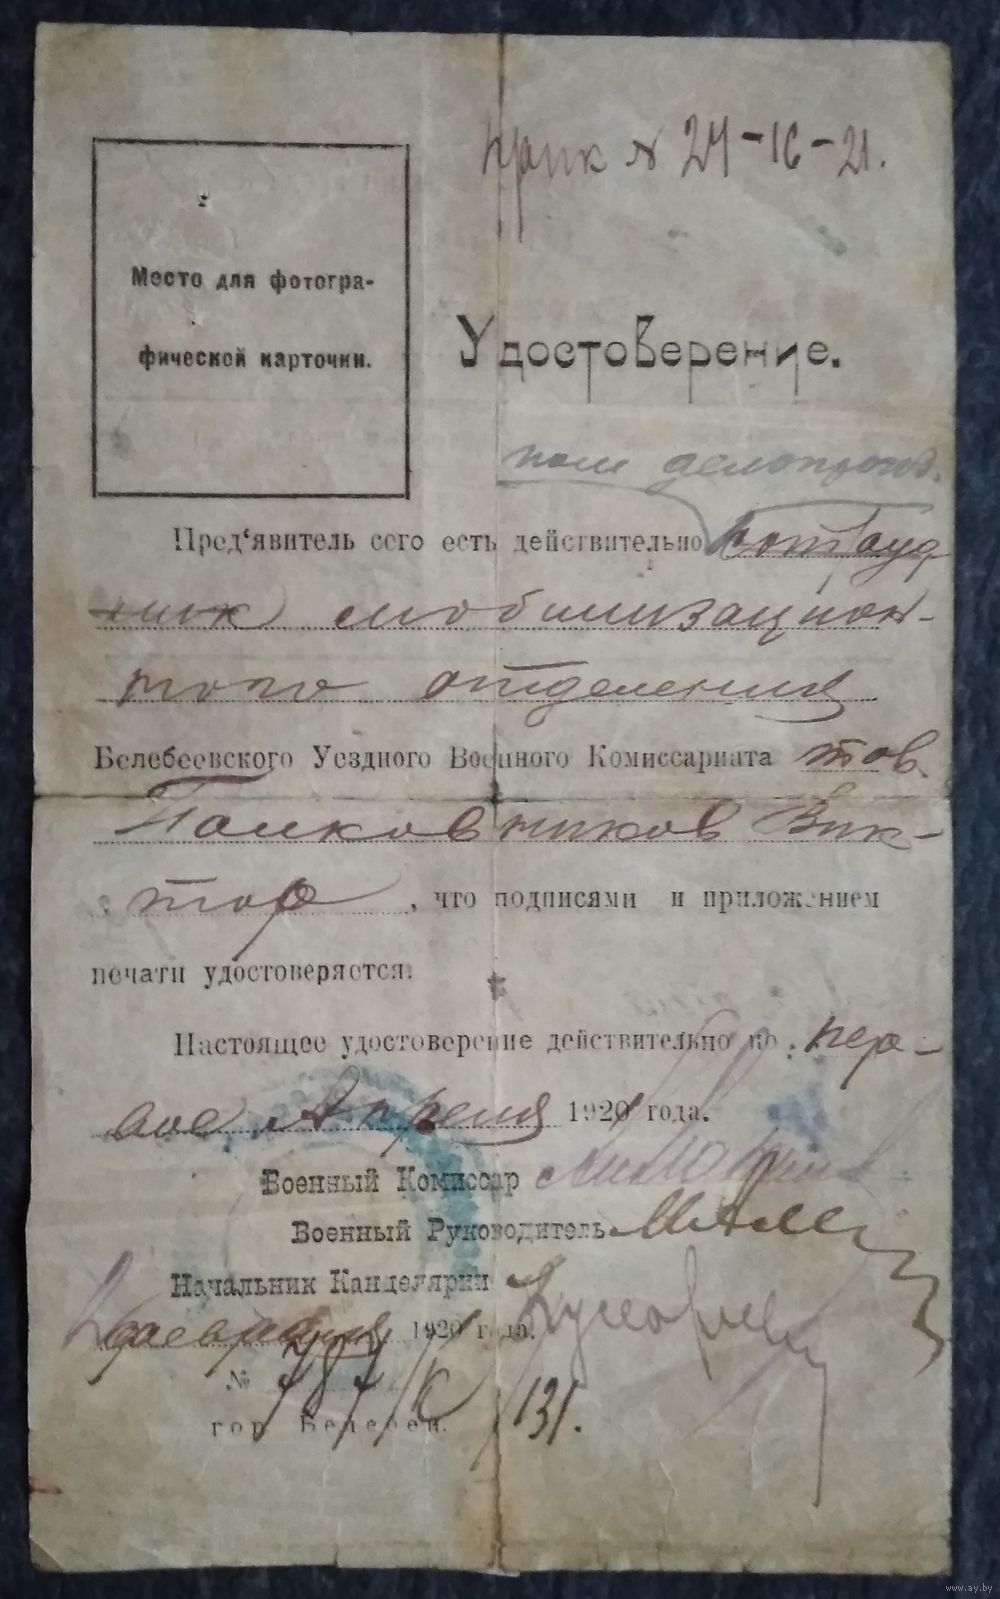 № 24-16-21.
Место для фотогра-
фической карточки.
Удостоверение.
пом делопроизв.
Пред‘явитель сего есть действительно сотруд
ник мобилизацион-
ного отделения
Белебеевского Уездного Военного Комиссариата тов.
Полковников Вик-
тор, что подписями и приложением
печати удостоверяется.
Настоящее удостоверение действительно по пер-
вое Апреля 1920 года.
Военный Комиссар
Военный Руководитель
Начальник Канцелярии
февраля 1920 года.
№ 787/С/131.
гор Белебей.
www.ay.by